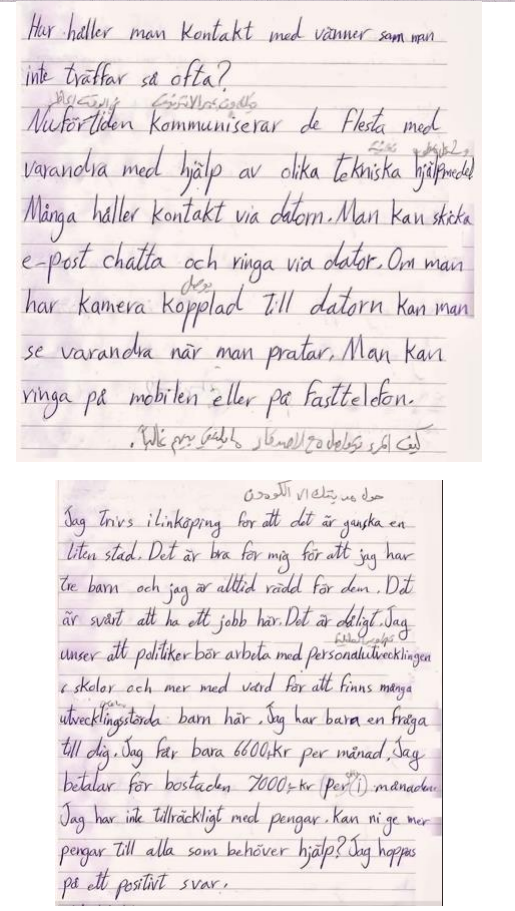 Hur håller man kontakt med vänner som man
inte träffar så ofta?
Nuförtiden kommuniserar de flesta med
varandra med hjälp av olika tekniska hjälpmedel
Många håller kontakt via datorn. Man kan skicka
e-post chatta och ringa via dator. Om man
har kamera kopplad till datorn kan man
se varandra när man pratar. Man kan
ringa på mobilen eller på fasttelefon.
Jag trivs ilinköping för att det är ganska en
liten stad. Det är bra för mig för att jag har
tre barn och jag är alltid rädd för dem. Det
är svårt att ha ett jobb här. Det är dåligt. Jag
unser att politiker bör arbeta med personalutvecklingen
i skolor och mer med vård för att finns många
utvecklingsstörda barn här. Jag har bara en fråga
till dig. Jag får bara 6600:kr per månad. Jag
betalar för bostaden 7000:-kr (per i) månaden.
Jag har inte tillräckligt med pengar. Kan ni ge mer
pengar till alla som behöver hjälp? Jag hoppas
på ett positivt svar.